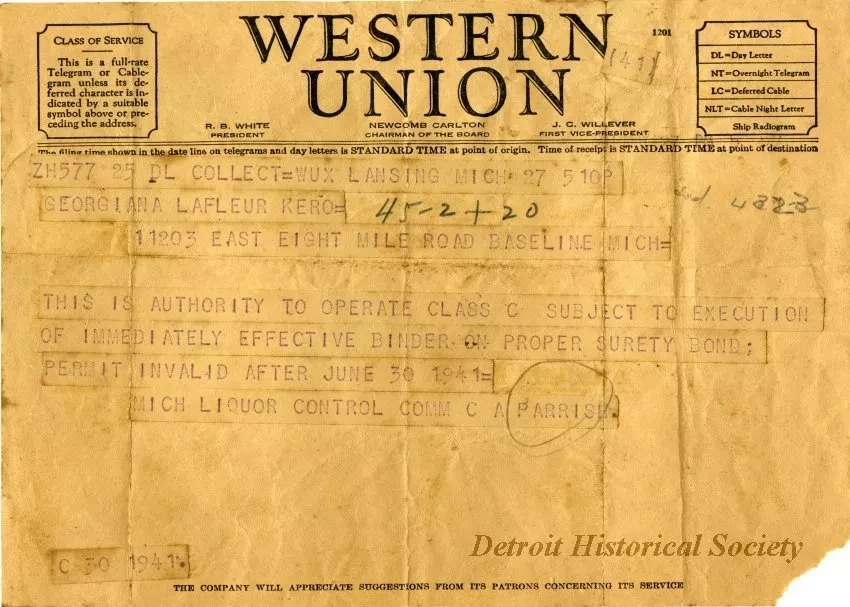 CLASS OF SERVICE
This is a full-rate
Telegram or Cable-
gram unless its de-
ferred character is in-
dicated by a suitable
symbol above or pre-
ceding the address.
WESTERN
UNION
1201
(41)
R. B. WHITE
PRESIDENT
NEWCOMB CARLTON
CHAIRMAN OF THE BOARD
J. C. WILLEVER
FIRST VICE-PRESIDENT
SYMBOLS
DL=Day Letter
NT=Overnight Telegram
LC=Deferred Cable
NLT=Cable Night Letter
Ship Radiogram
The filing time shown in the date line on telegrams and day letters is STANDARD TIME at point of origin. Time of receipt is STANDARD TIME at point of destination
ZH577 25 DL COLLECT=WUX LANSING MICH 27 510P
GEORGIANA LAFLEUR KERO= 45-2+20
4823
11203 EAST EIGHT MILE ROAD BASELINE MICH=
THIS IS AUTHORITY TO OPERATE CLASS C SUBJECT TO EXECUTION
OF IMMEDIATELY EFFECTIVE BINDER ON PROPER SURETY BOND;
PERMIT INVALID AFTER JUNE 30 1941=
MICH LIQUOR CONTROL COMM C A PARRISH.
Detroit Historical Society
C 30 1941.
THE COMPANY WILL APPRECIATE SUGGESTIONS FROM ITS PATRONS CONCERNING ITS SERVICE